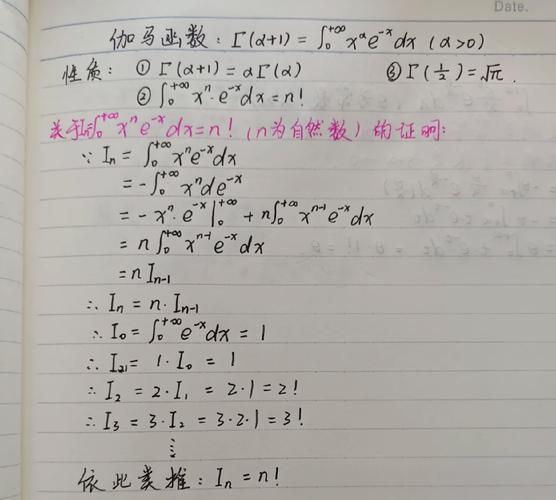 Date.
伽马函数：Γ(α+1) = ∫₀^{+∞} x^α e^{-x} dx (α>0)
性质：① Γ(α+1) = αΓ(α) ③ Γ(1/2) = √π.
② ∫₀^{+∞} xⁿ·e^{-x} dx = n!
关于∫₀^{+∞} xⁿ e^{-x} dx = n! (n为自然数) 的证明：
∵ Iₙ = ∫₀^{+∞} xⁿ e^{-x} dx
= -∫₀^{+∞} xⁿ de^{-x}
= -xⁿ·e^{-x} |₀^{+∞} + n∫₀^{+∞} x^{n-1} e^{-x} dx
= n∫₀^{+∞} x^{n-1} e^{-x} dx
= n Iₙ₋₁
∴ Iₙ = n·Iₙ₋₁
∴ I₀ = ∫₀^{+∞} e^{-x} dx = 1
∴ I₁ = 1·I₀ = 1
∴ I₂ = 2·I₁ = 2·1 = 2!
∴ I₃ = 3·I₂ = 3·2·1 = 3!
⋮
依此类推：Iₙ = n!